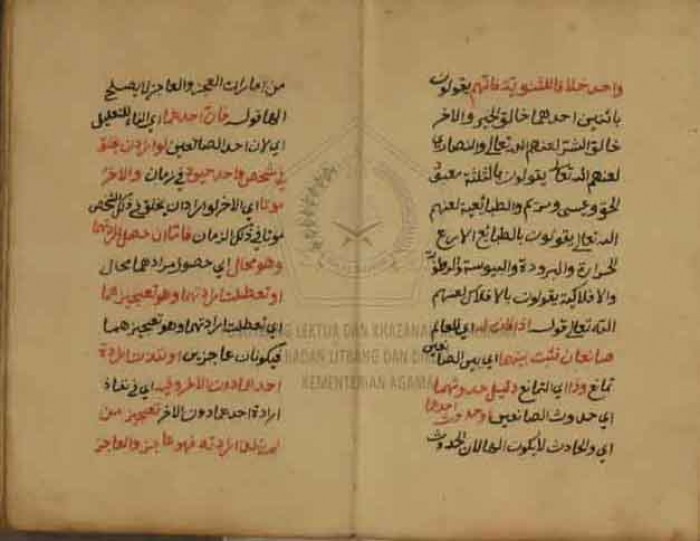 واحد خلافا للثنوية فانهم يقولون
باثنين احدهما خالق الخير والاخر
خالق الشر لعنهم الله تعالى والنصارى
لعنهم الله تعالى يقولون بالثلثة
وعيسى ومريم والطبائعية لعنهم
الله تعالى يقولون بالطبائع الاربع
الحرارة والبرودة واليبوسة والرطوبة
والافلاكية يقولون بالافلاك لعنهم
الله تعالى قوله اذ لو كان له اي للعالم
صانعان فثبت بينهما اي بين الصانعين
تمانع وذا اي التمانع دليل حدوثهما
اي حدوث الصانعين او حدوث احدهما
اي والحادث لا يكون الها لان الحدوث
من امارات العجز والعاجز لا يصلح
الها قوله فان احدهما اي الفاء للتعليل
اي لان احد الصانعين لو اراد ان يخلق
في شخص واحد حيوة في زمان والاخر
موتا اي الاخر لو اراد ان يخلق في ذلك الشخص
موتا في ذلك الزمان فاما ان حصل مرادهما
وهو محال اي حصول مرادهما محال
او تعطلت ارادتهما وهو تعجيزهما
اي تعطلت ارادتهما وهو تعجيزهما
فيكونان عاجزين او نفذت ارادة
احدهما دون الاخر وفيه اي في نفاذ
ارادة احدهما دون الاخر تعجيز من
لم تنفذ ارادته فهو عاجز والعاجز
LEKTUR DAN KHAZANAH
BADAN LITBANG DAN
KEMENTERIAN AGAMA